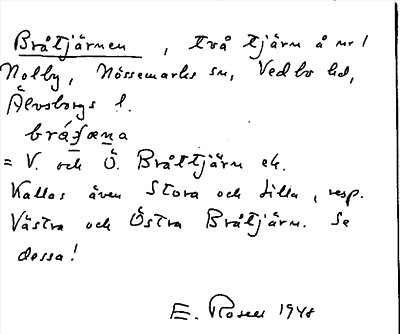 Bråtjärnen, två tjärn å nr 1
Nolby, Nössemarks sn, Vedbo hd,
Älvsborgs l.
= V. och Ö. Bråttjärn ek.
Kallas även Stora och Lilla, resp.
Västra och Östra Bråtjärn. Se
dessa!
E. Rosell 1948